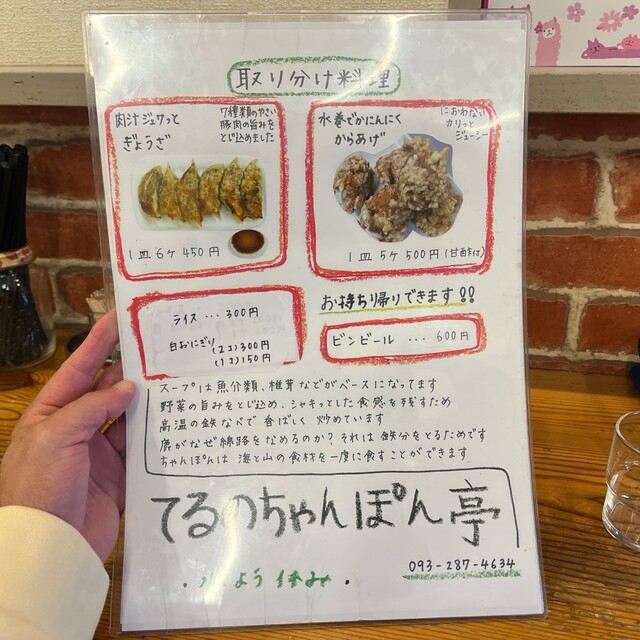 取り分け料理
肉汁ジュワっと
ぎょうざ
7種類のやさい
豚肉の旨みを
とじ込めました
1皿 6ケ 450円
水巻でかにんにく
からあげ
におわない
カリっと
ジューシー
1皿 5ケ 500円(甘酢は)
ライス … 300円
白おにぎり (2コ)300円
(1コ)150円
お持ち帰りできます!!
ビンビール … 600円
スープは魚介類、椎茸などがベースになってます
野菜の旨みをとじ込め、シャキっとした食感を残すため
高温の鉄なべで香ばしく炒めています
鹿がなぜ線路をなめるのか?それは鉄分をとるためです
ちゃんぽんは海と山の食材を一度に食すことができます
てるのちゃんぽん亭
093-287-4634